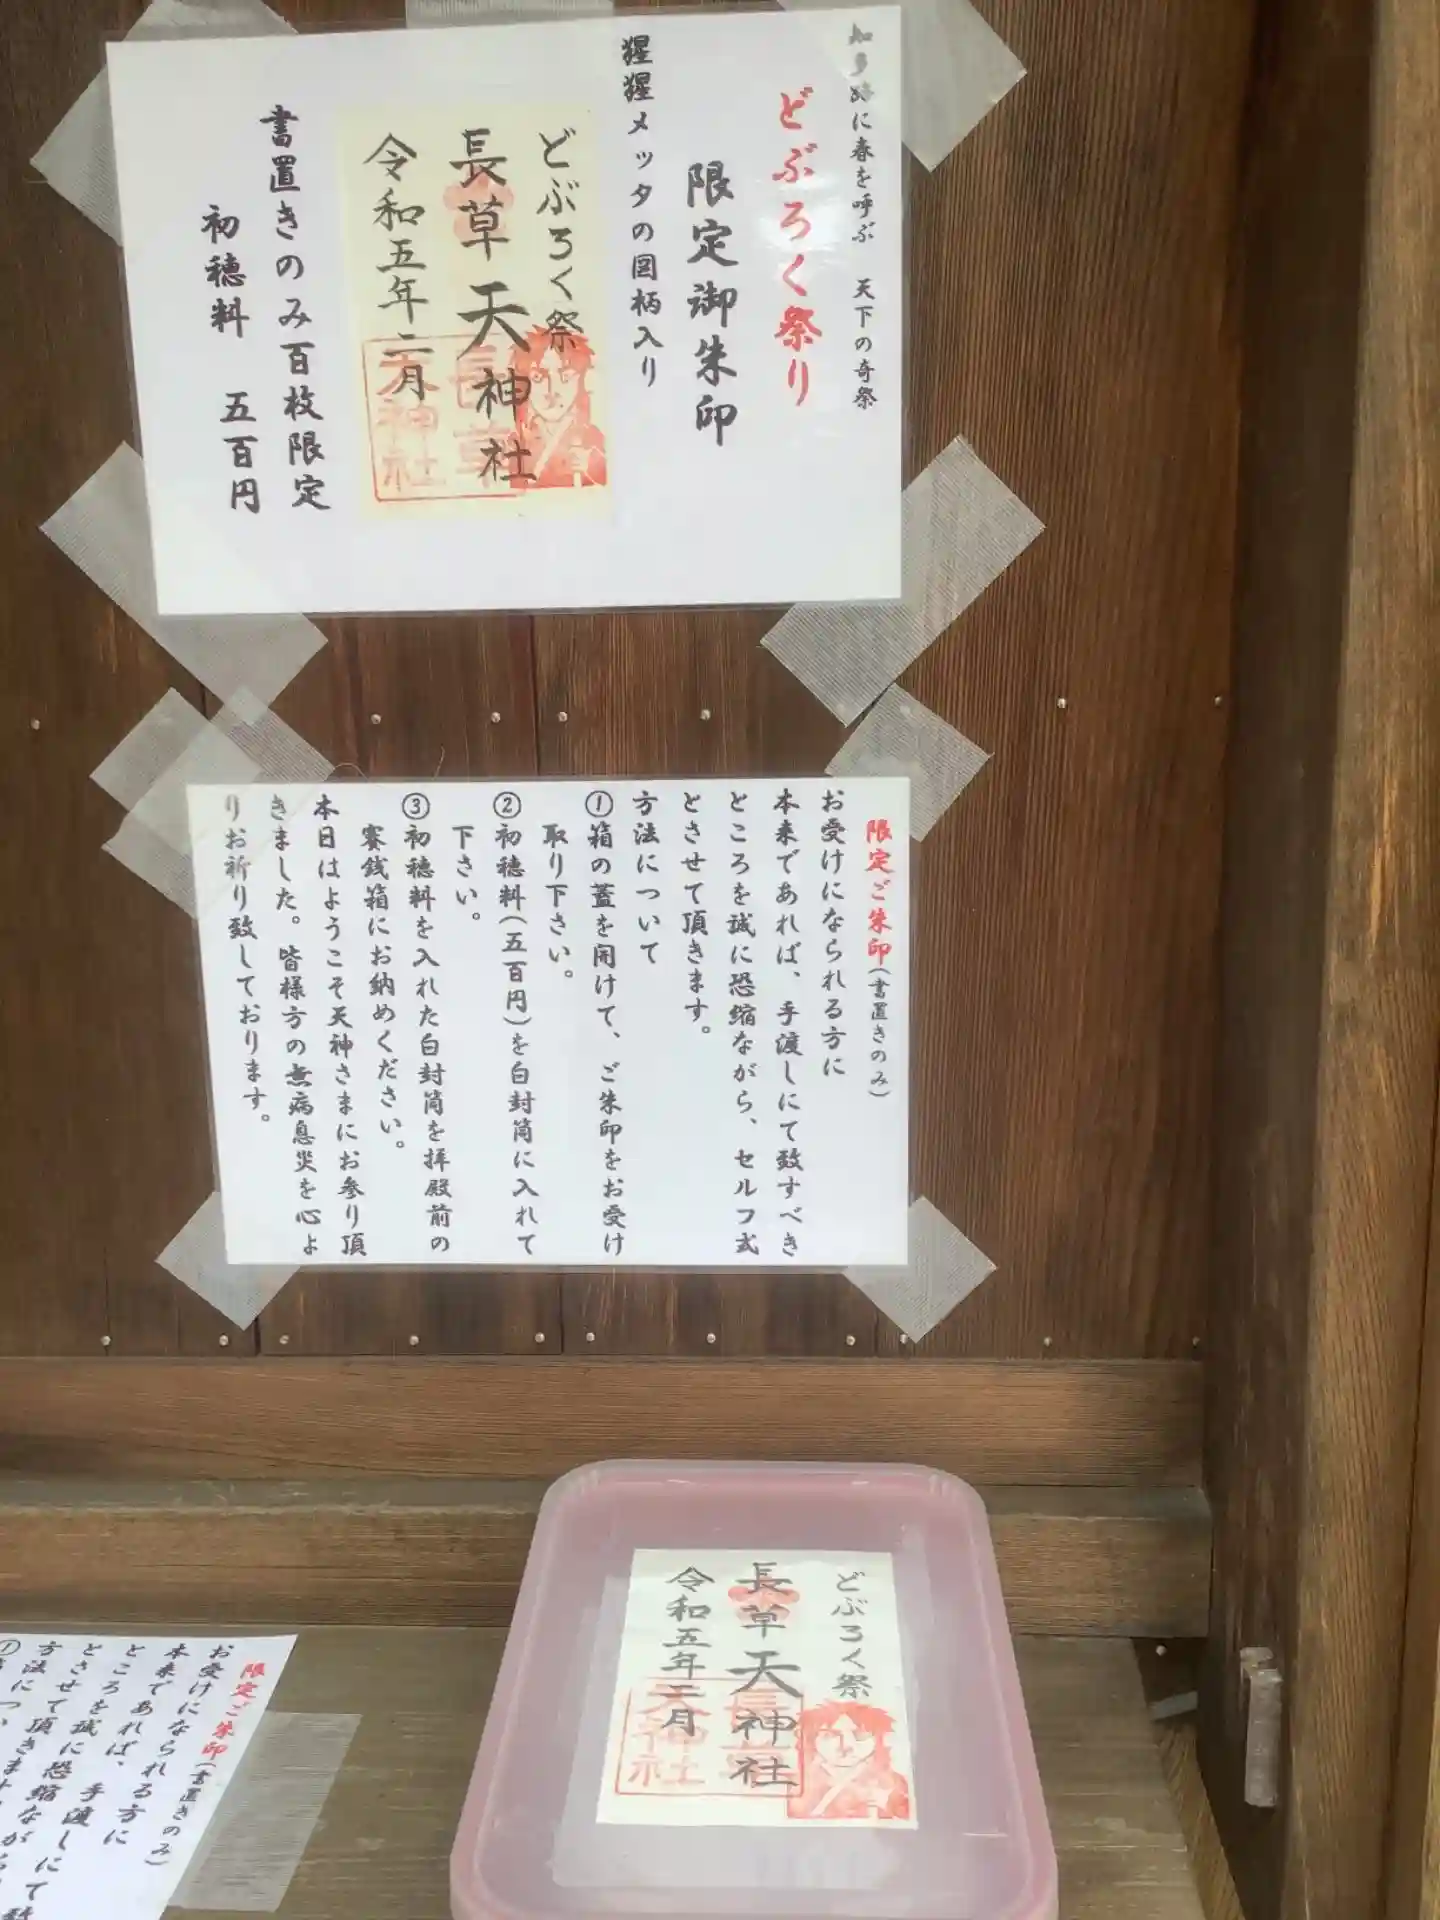 知多路に春を呼ぶ 天下の奇祭
どぶろく祭り
限定御朱印
猩猩メッタの図柄入り
どぶろく祭
長草天神社
令和五年二月
長草
天神社
書置きのみ百枚限定
初穂料 五百円
限定ご朱印(書置きのみ)
お受けになられる方に
本来であれば、手渡しにて致すべき
ところを誠に恐縮ながら、セルフ式
とさせて頂きます。
方法について
①箱の蓋を開けて、ご朱印をお受け
取り下さい。
②初穂料(五百円)を白封筒に入れて
下さい。
③初穂料を入れた白封筒を拝殿前の
賽銭箱にお納めください。
本日はようこそ天神さまにお参り頂
きました。皆様方の無病息災を心よ
りお祈り致しております。
どぶろく祭
長草天神社
令和五年二月
天神社
限定ご朱印(書置きのみ)
お受けになられる方に
本来であれば、手渡しにて
ところを誠に恐縮ながら
とさせて頂きます
方法につい
①